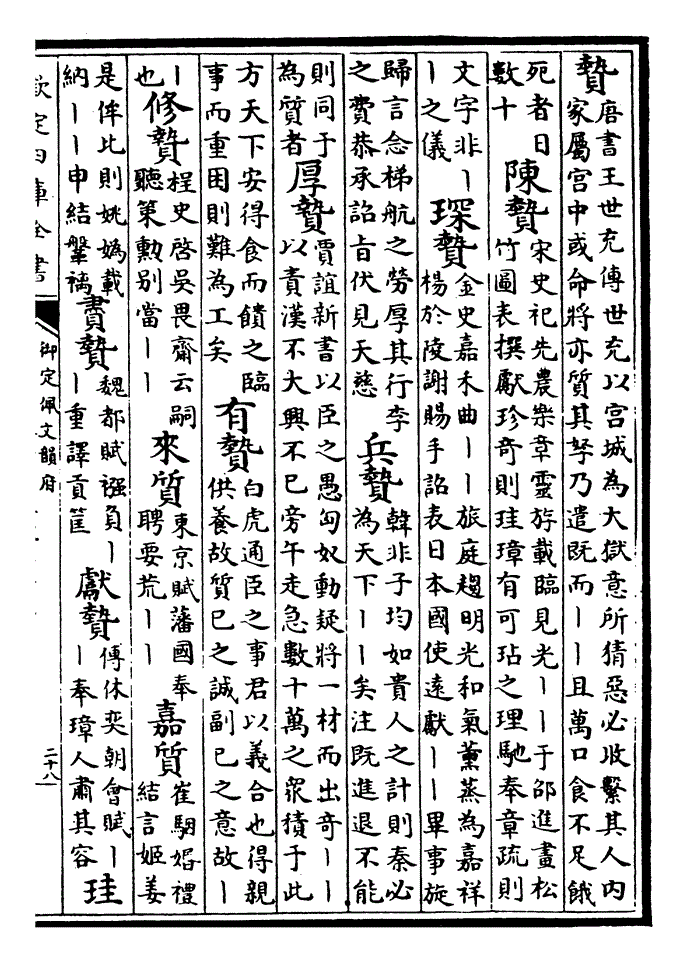 贄
唐書王世充傳世充以宮城為大獄意所猜惡必收繫其人内
家屬宮中或命將亦質其孥乃遣既而丨丨且萬口食不足餓
死者日
數十
陳贄
宋史祀先農樂章靈斿載臨見光丨丨于邵進畫松
竹圖表撰獻珍奇則珪璋有可玷之理馳奉章疏則
文字非丨
丨之儀
琛贄
金史嘉禾曲丨丨旅庭趨明光和氣薰蒸為嘉祥
楊於陵謝賜手詔表日本國使遠獻丨丨畢事旋
歸言念梯航之勞厚其行李
之費恭承詔旨伏見天慈
兵贄
韓非子均如貴人之計則秦必
為天下丨丨矣注既進退不能
則同于
為質者
厚贄
賈誼新書以臣之愚匈奴動疑將一材而出奇丨丨
以責漢不大興不已旁午走急數十萬之衆積于此
方天下安得食而饋之臨
事而重困則難為工矣
有贄
白虎通臣之事君以義合也得親
供養故質已之誠副已之意故丨
丨
也
修贄
桯史啓吳畏齋云嗣
聽策勲别當丨丨
來質
東京賦藩國奉
聘要荒丨丨
嘉質
崔駰婚禮
結言姬姜
是侔比則姚嬀載
納丨丨申結鞶褵
賮贄
魏都賦襁負丨
丨重譯貢篚
獻贄
傅休奕朝會賦丨
丨奉璋人肅其容
珪
欽定四庫全書
御定佩文韻府
二十八